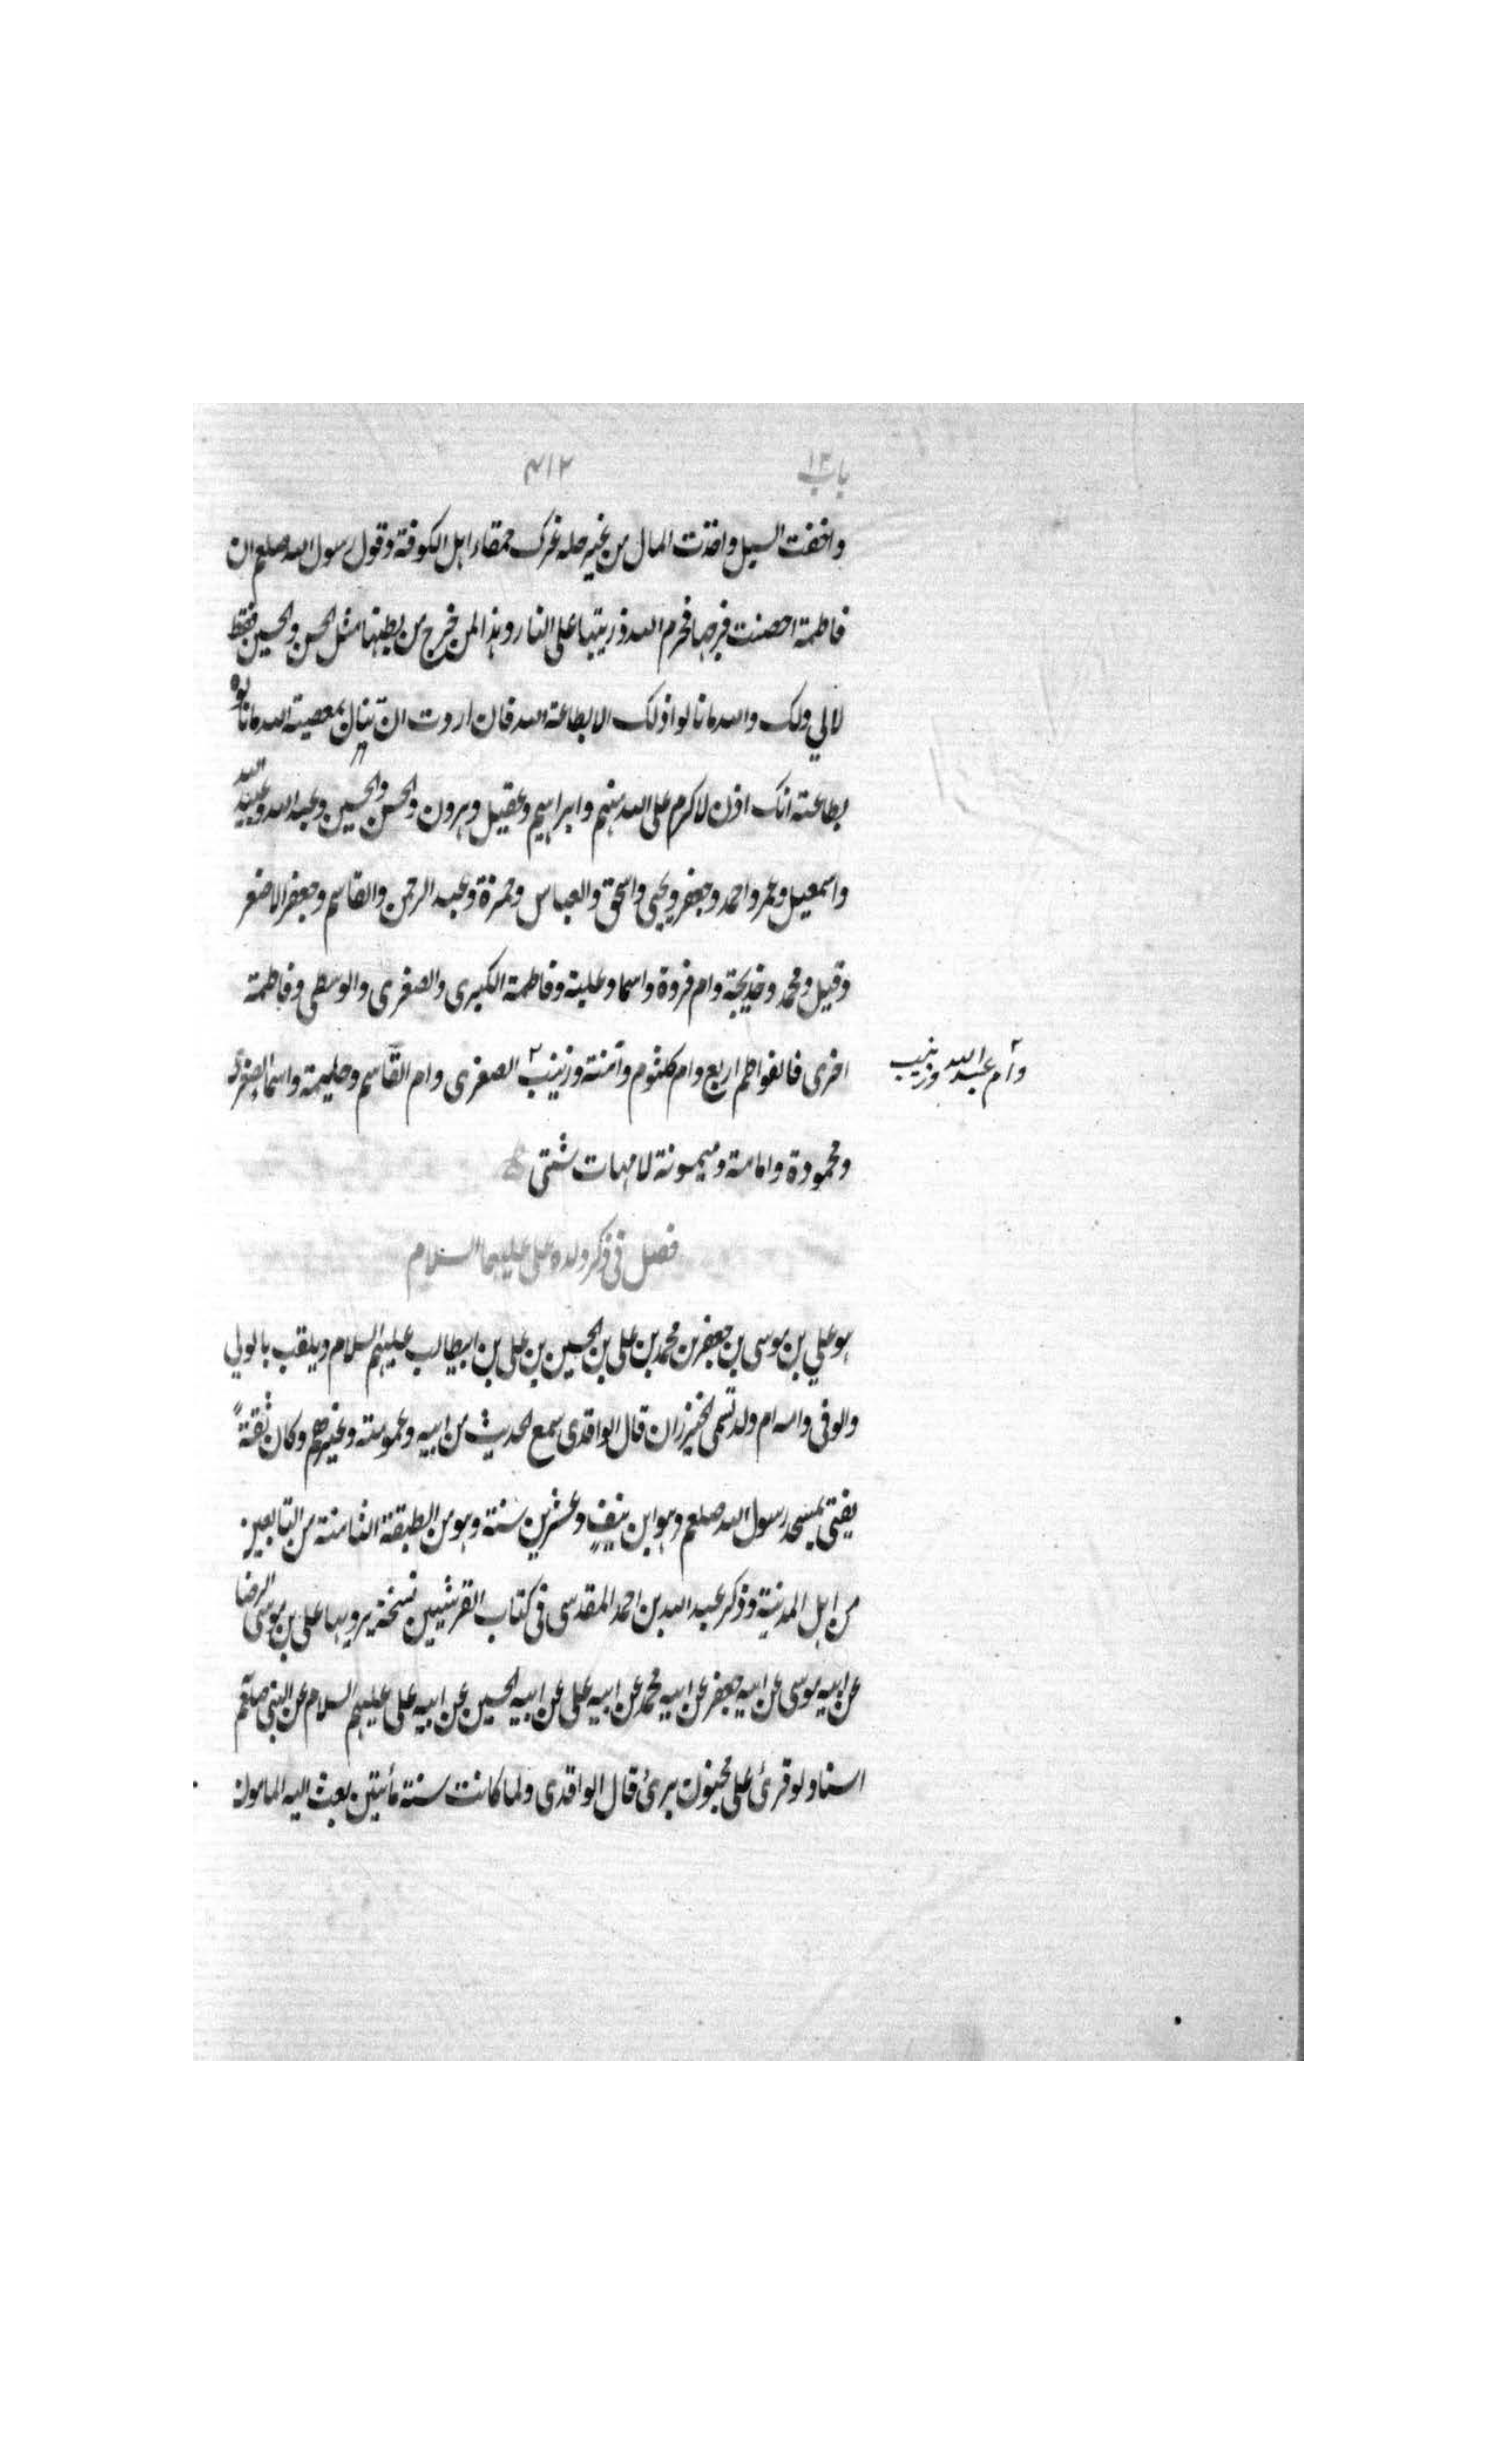 باب ١٢ ٤١٢
واخفت السبل واخذت المال من غير حله غرك حمقاء اهل الكوفة وقول رسول الله صلعم ان
فاطمة احصنت فرجها فحرم الله ذريتها على النار وهذا لمن خرج من بطنها مثل الحسن والحسين فقط
لا لي ولك والله ما نالوا ذلك الا بطاعة الله فان اردت ان تنال بمعصية الله ما نالوه
بطاعته انك اذن لاكرم على الله منهم وابراهيم وعقيل وهرون والحسن والحسين وعبد الله وعبيد الله
واسمعيل وعمر واحمد وجعفر ويحيى واسحق والعباس وحمزة وعبد الرحمن والقاسم وجعفر الاصغر
وقيل ومحمد وخديجة وام فروة واسما وعلية وفاطمة الكبرى والصغرى والوسطى وفاطمة
اخرى فالفواطم اربع وام كلثوم وآمنة وزينب ٢ الصغرى وام القاسم وحليمة واسما الصغرى
٢ وام عبد الله وزينب
ومحمودة وامامة وميمونة لامهات شتى
فصل في ذكر ولده على عليهما السلام
هو علي بن موسى بن جعفر بن محمد بن على بن الحسين بن على بن ابيطالب عليهم السلام ويلقب بالولي
والوفى وامه ام ولد تسمى الخيزران قال الواقدى سمع الحديث من ابيه وعمومته وغيرهم وكان ثقة
يفتى بمسجد رسول الله صلعم وهو ابن نيف وعشرين سنة وهو من الطبقة الثامنة من التابعين
من اهل المدينة وذكر عبد الله بن احمد المقدسى فى كتاب القرشيين نسخة يرويها على بن موسى الرضا
عن ابيه موسى عن ابيه جعفر عن ابيه محمد عن ابيه على عن ابيه الحسين عن ابيه على عليهم السلام عن النبى صلعم
اسنادا لو قرئ على مجنون برئ قال الواقدى ولما كانت سنة مأتين بعث اليه المامون